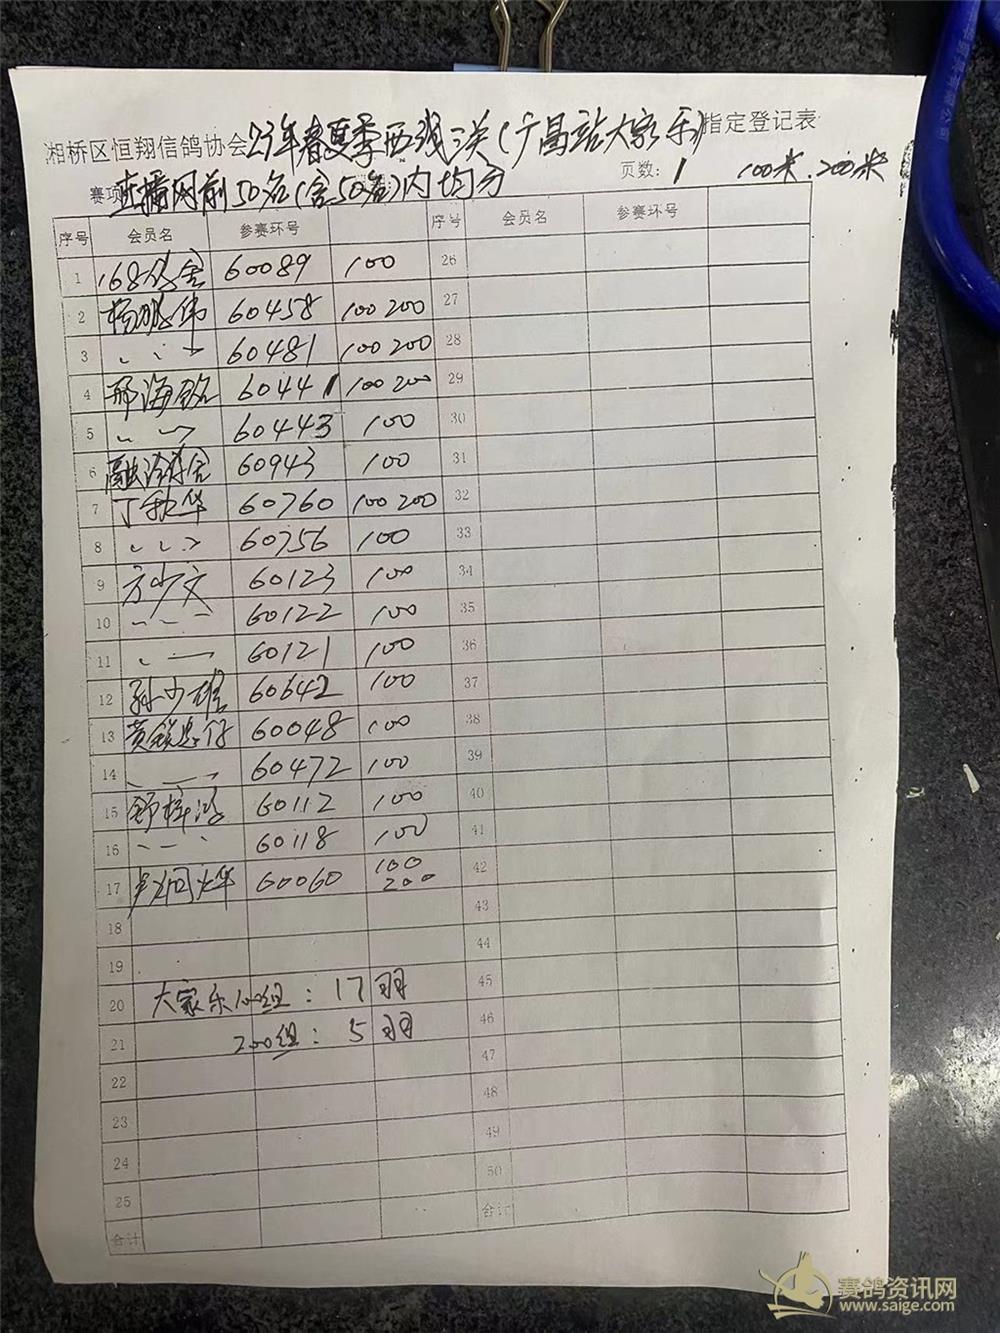 湘桥区恒翔信鸽协会23年春夏季西线三关(广昌站大家乐)指定登记表
赛项 直播网前50名(含50名)内均分 页数: 1 100米.200米
序号 会员名 参赛环号 序号 会员名 参赛环号
1 168鸽舍 60089 100 26
2 杨鹏伟 60458 100 200 27
3 〃 60481 100 200 28
4 邢海铭 60441 100 200 29
5 〃 60443 100 30
6 鸽舍 60943 100 31
7 丁秋华 60760 100 200 32
8 〃 60756 100 33
9 方少文 60123 100 34
10 〃 60122 100 35
11 〃 60121 100 36
12 孙少雄 60642 100 37
13 黄 60048 100 38
14 〃 60472 100 39
15 郑梓鸿 60112 100 40
16 〃 60118 100 41
17 60060 100 200 42
18 43
19 44
20 大家乐100组: 17羽 45
21 200组: 5羽 46
22 47
23 48
24 49
25 50
合计 合计
赛鸽资讯网
www.saige.com